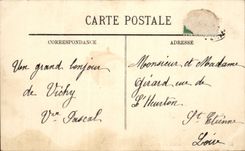 CARTE POSTALE
CORRESPONDANCE
ADRESSE
Un grand bonjour
de Vichy
Vve Pascal
Monsieur et Madame
Gérard rue de
St Etienne
Loire